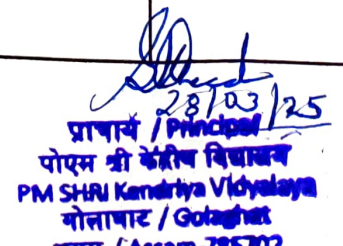 28/03/25
प्राचार्य / Principal
पोएम श्री केंद्रीय विद्यालय
PM SHRI Kendriya Vidyalaya
गोलाघाट / Golaghat
/ Assam 785702